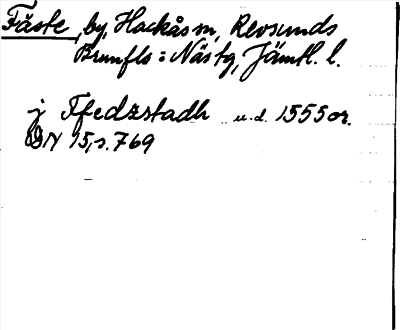 Fäste, by, Hackås sn, Revsunds
Brunflo: Näs tg, Jämtl. l.
j Ffedzstadh u.d. 1555 or.
DN 15, s. 769